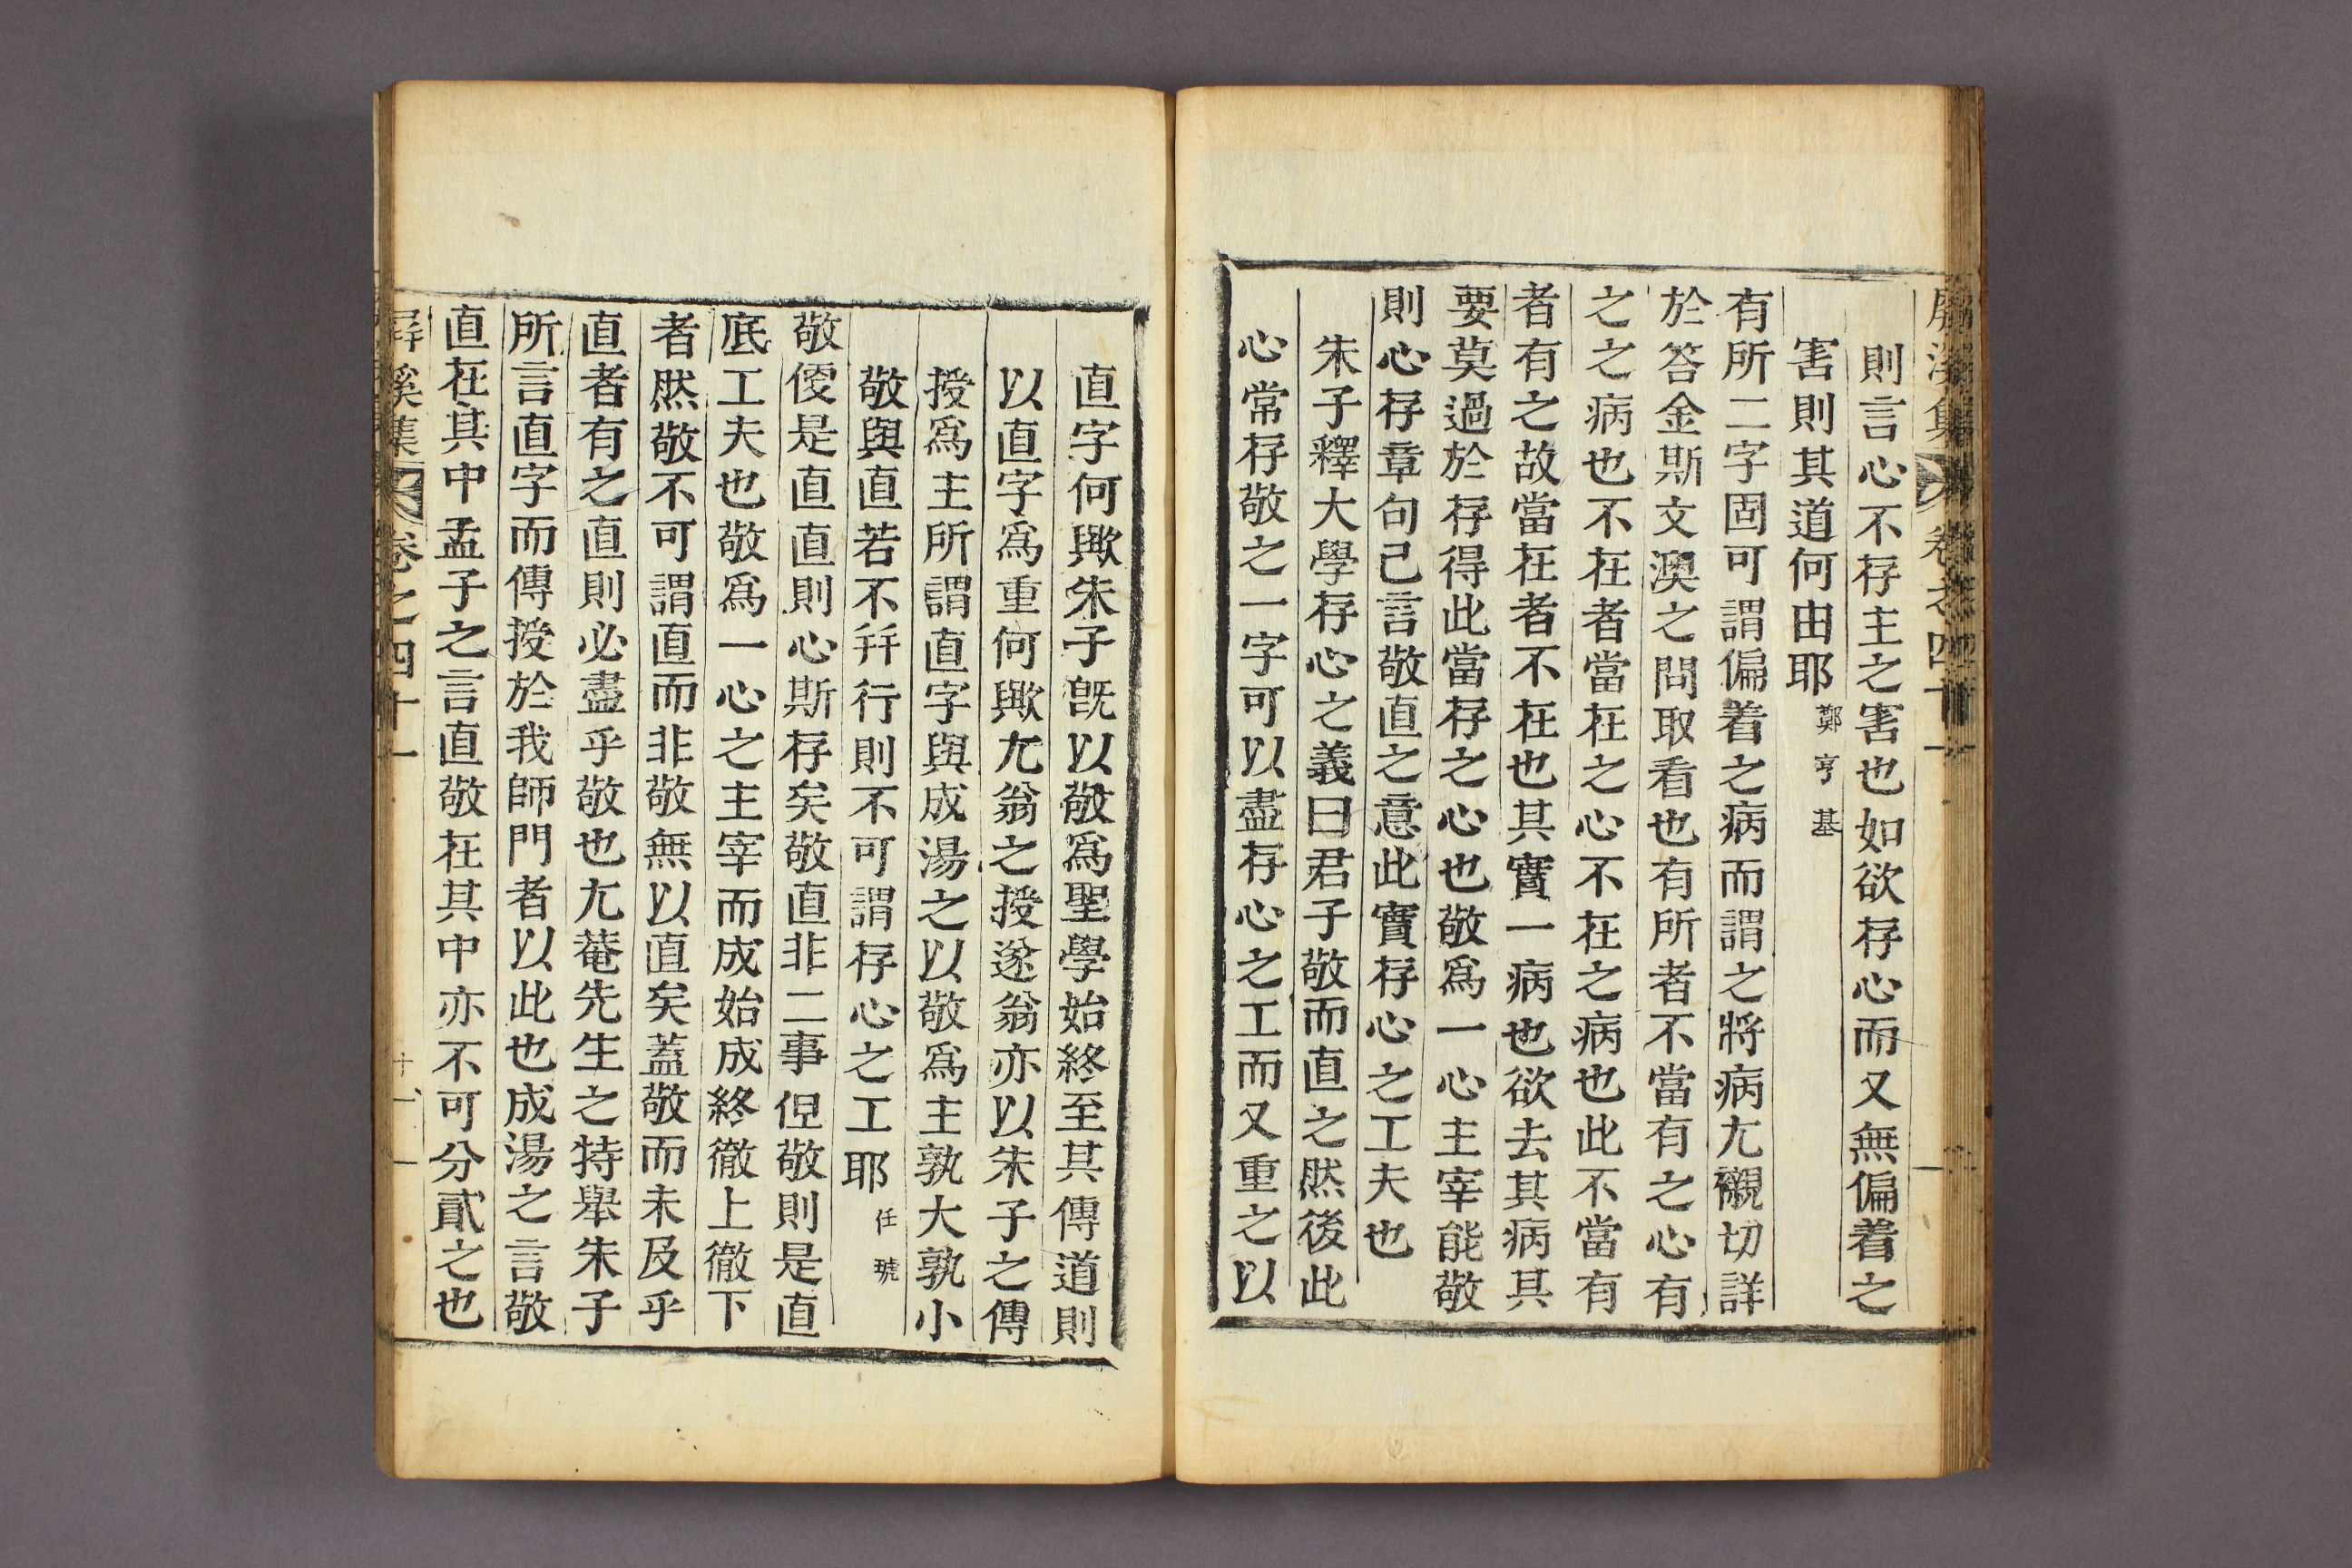 屛溪集 卷之四十一
則言心不存主之害也如欲存心而又無偏着之
害則其道何由耶 鄭亨基
有所二字固可謂偏着之病而謂之將病尤襯切詳
於答金斯文澳之問取看也有所者不當有之心有
之之病也不在者當在之心不在之病也此不當有
者有之故當在者不在也其實一病也欲去其病其
要莫過於存得此當存之心也敬爲一心主宰能敬
則心存章句己言敬直之意此實存心之工夫也
朱子釋大學存心之義曰君子敬而直之然後此
心常存敬之一字可以盡存心之工而又重之以
直字何歟朱子旣以敬爲聖學始終至其傳道則
以直字爲重何歟尤翁之授遂翁亦以朱子之傳
授爲主所謂直字與成湯之以敬爲主孰大孰小
敬與直若不幷行則不可謂存心之工耶 任㻴
敬便是直直則心斯存矣敬直非二事但敬則是直
底工夫也敬爲一心之主宰而成始成終徹上徹下
者然敬不可謂直而非敬無以直矣蓋敬而未及乎
直者有之直則必盡乎敬也尤菴先生之特擧朱子
所言直字而傳授於我師門者以此也成湯之言敬
直在其中孟子之言直敬在其中亦不可分貳之也
屛溪集 卷之四十一 十一